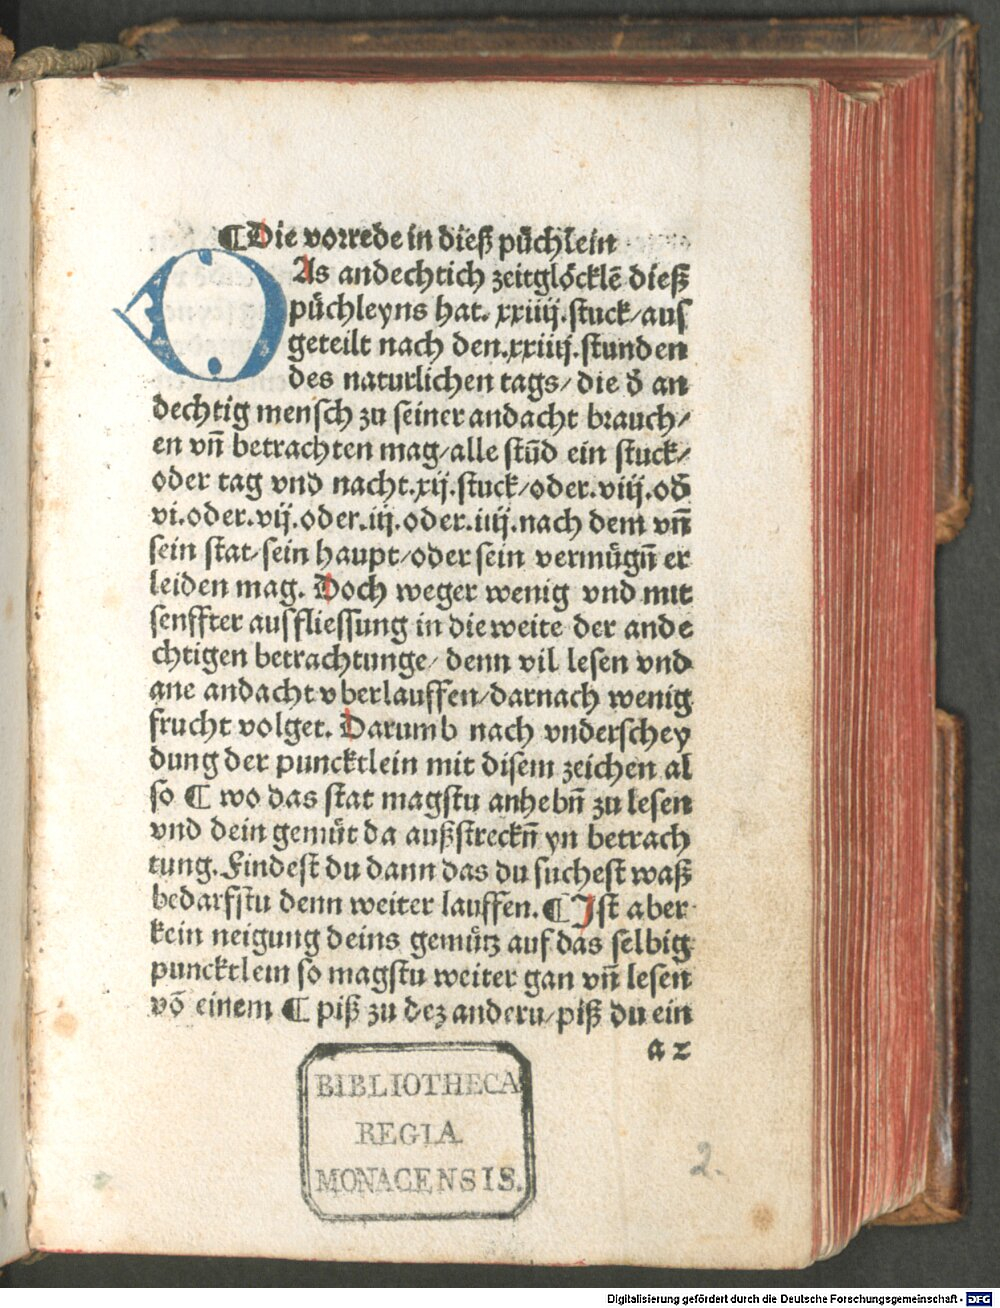 ¶ Die vorrede in dieß pu̇chlein
DAs andechtich zeitglȯcklē dieß
pu̇chleyns hat. xxiiij. stuck/ aus
geteilt nach den. xxiiij. stunden
des naturlichen tags/ die d̄ an
dechtig mensch zu seiner andacht brauch/
en vn̄ betrachten mag/ alle stūd ein stuck/
oder tag vnd nacht. xij. stuck/ oder. viij. od̄
vi. oder. vij. oder. iij. oder. iiij. nach dem vn̄
sein stat/ sein haupt/ oder sein vermu̇gn̄ er
leiden mag. Doch weger wenig vnd mit
senffter ausfliessung in die weite der ande
chtigen betrachtunge/ denn vil lesen vnd
ane andacht vberlauffen/ darnach wenig
frucht volget. Darumb nach vnderschey
dung der puncktlein mit disem zeichen al
so ¶ wo das stat magstu anhebn̄ zu lesen
vnd dein gemu̇t da außstreckn̄ yn betrach
tung. Findest du dann das du suchest waß
bedarfstu denn weiter lauffen. ¶ Ist aber
kein neigung deins gemu̇tz auf das selbig
puncktlein so magstu weiter gan vn̄ lesen
vō einem ¶ piß zu dez anderu/ piß du ein
a 2
BIBLIOTHECA
REGIA
MONACENSIS.
2.
Digitalisierung gefördert durch die Deutsche Forschungsgemeinschaft - DFG